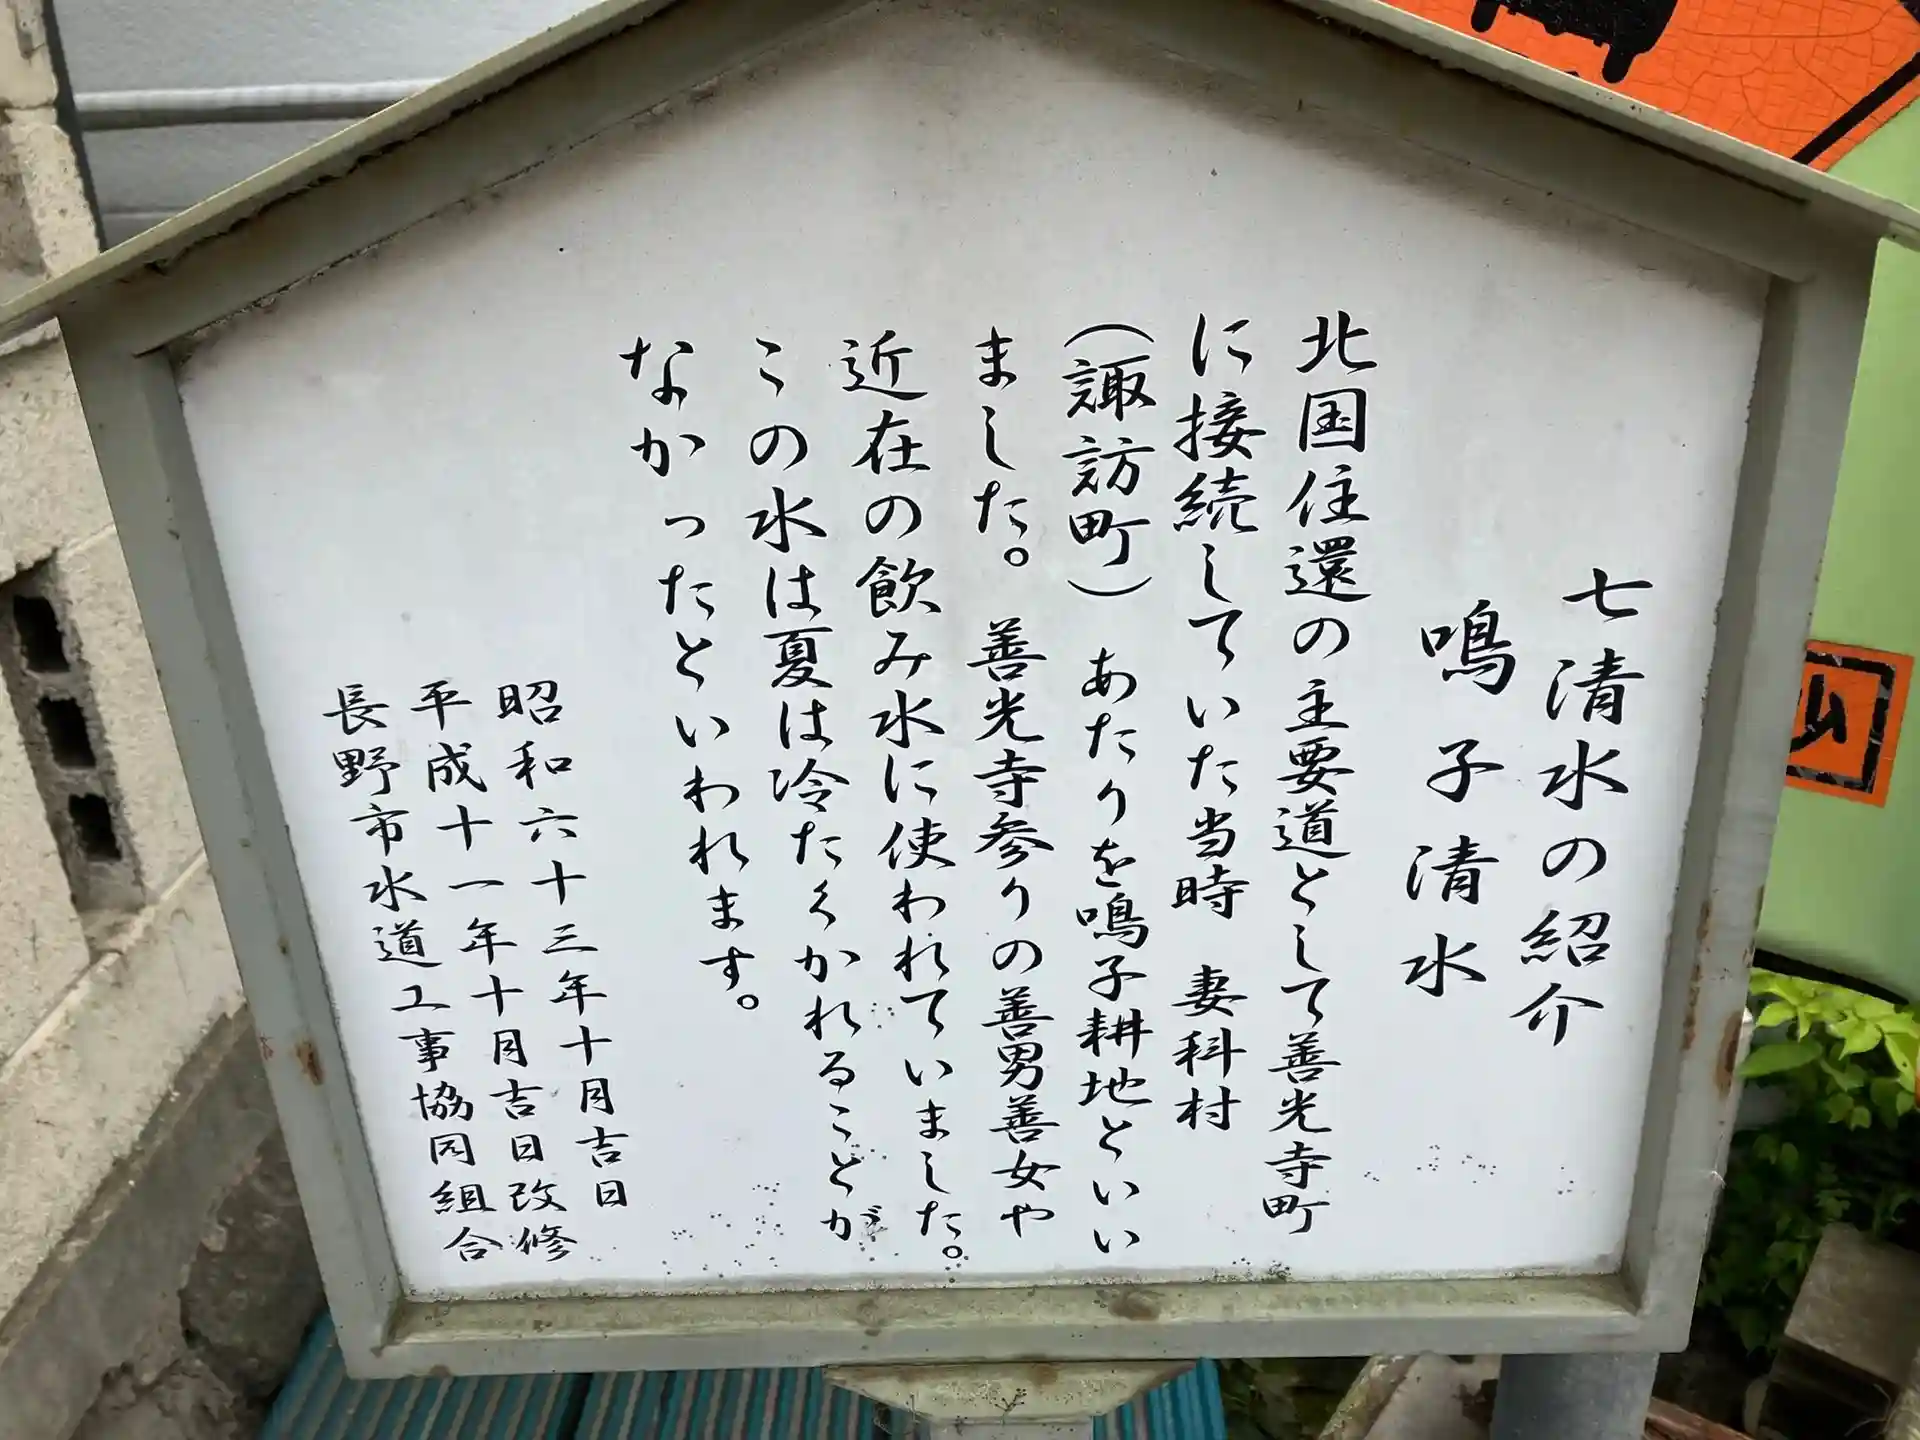 七清水の紹介
鳴子清水
北国住還の主要道として善光寺町
に接続していた当時　妻科村
（諏訪町）あたりを鳴子耕地といい
ました。善光寺参りの善男善女や
近在の飲み水に使われていました。
この水は夏は冷たくかれることが
なかったといわれます。
昭和六十三年十月吉日
平成十一年十月吉日改修
長野市水道工事協同組合